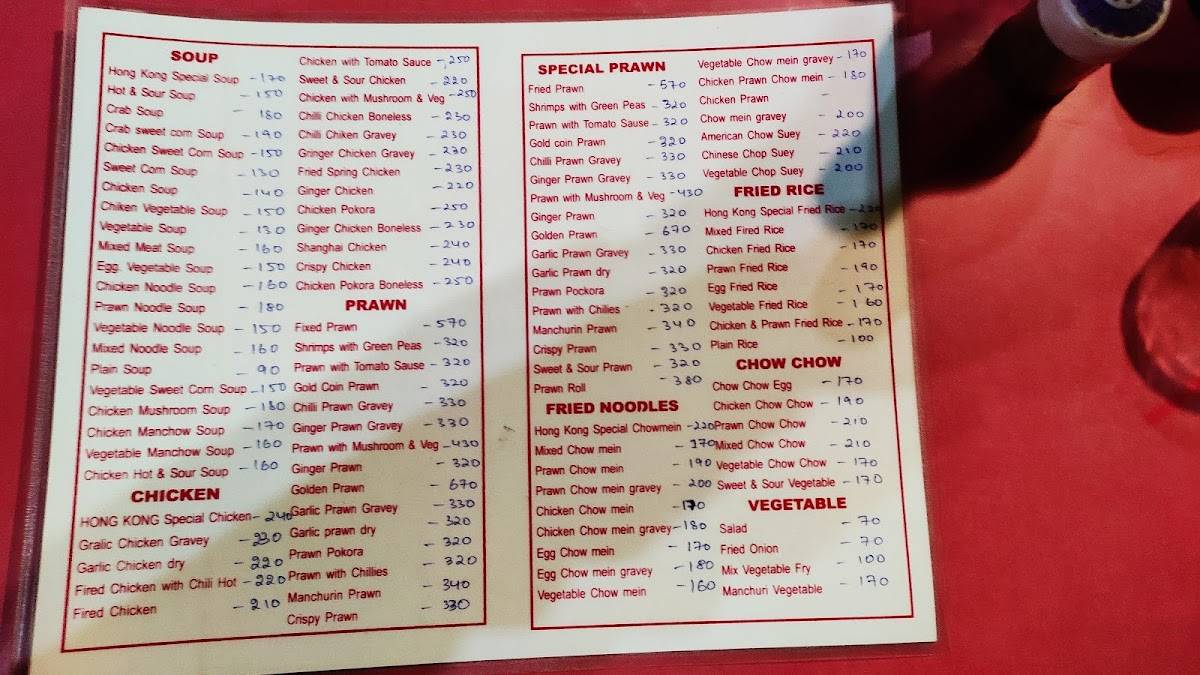 SOUP
Hong Kong Special Soup - 170
Hot & Sour Soup - 150
Crab Soup - 180
Crab sweet corn Soup - 190
Chicken Sweet Corn Soup - 150
Sweet Corn Soup - 130
Chicken Soup - 140
Chiken Vegetable Soup - 150
Vegetable Soup - 130
Mixed Meat Soup - 160
Egg. Vegetable Soup - 150
Chicken Noodle Soup - 160
Prawn Noodle Soup - 180
Vegetable Noodle Soup - 150
Mixed Noodle Soup - 160
Plain Soup - 90
Vegetable Sweet Corn Soup - 150
Chicken Mushroom Soup - 180
Chicken Manchow Soup - 170
Vegetable Manchow Soup - 160
Chicken Hot & Sour Soup - 160
CHICKEN
HONG KONG Special Chicken - 240
Gralic Chicken Gravey - 230
Garlic Chicken dry - 220
Fired Chicken with Chili Hot - 220
Fired Chicken - 210
Chicken with Tomato Sauce - 250
Sweet & Sour Chicken - 220
Chicken with Mushroom & Veg - 250
Chilli Chicken Boneless - 230
Chilli Chiken Gravey - 230
Gringer Chicken Gravey - 230
Fried Spring Chicken - 230
Ginger Chicken - 220
Chicken Pokora - 250
Ginger Chicken Boneless - 230
Shanghai Chicken - 240
Crispy Chicken - 240
Chicken Pokora Boneless - 250
PRAWN
Fixed Prawn - 570
Shrimps with Green Peas - 320
Prawn with Tomato Sause - 320
Gold Coin Prawn - 320
Chilli Prawn Gravey - 330
Ginger Prawn Gravey - 330
Prawn with Mushroom & Veg - 430
Ginger Prawn - 320
Golden Prawn - 670
Garlic Prawn Gravey - 330
Garlic prawn dry - 320
Prawn Pokora - 320
Prawn with Chillies - 320
Manchurin Prawn - 340
Crispy Prawn - 330
SPECIAL PRAWN
Fried Prawn - 570
Shrimps with Green Peas - 320
Prawn with Tomato Sause - 320
Gold coin Prawn - 320
Chilli Prawn Gravey - 330
Ginger Prawn Gravey - 330
Prawn with Mushroom & Veg - 430
Ginger Prawn - 320
Golden Prawn - 670
Garlic Prawn Gravey - 330
Garlic Prawn dry - 320
Prawn Pockora - 320
Prawn with Chillies - 320
Manchurin Prawn - 340
Crispy Prawn - 330
Sweet & Sour Prawn - 320
Prawn Roll - 380
FRIED NOODLES
Hong Kong Special Chowmein - 220
Mixed Chow mein - 170
Prawn Chow mein - 190
Prawn Chow mein gravey - 200
Chicken Chow mein - 170
Chicken Chow mein gravey - 180
Egg Chow mein - 170
Egg Chow mein gravey - 180
Vegetable Chow mein - 160
Vegetable Chow mein gravey - 170
Chicken Prawn Chow mein - 180
Chicken Prawn -
Chow mein gravey - 200
American Chow Suey - 220
Chinese Chop Suey - 210
Vegetable Chop Suey - 200
FRIED RICE
Hong Kong Special Fried Rice - 220
Mixed Fired Rice - 170
Chicken Fried Rice - 170
Prawn Fried Rice - 190
Egg Fried Rice - 170
Vegetable Fried Rice - 160
Chicken & Prawn Fried Rice - 170
Plain Rice - 100
CHOW CHOW
Chow Chow Egg - 170
Chicken Chow Chow - 190
Prawn Chow Chow - 210
Mixed Chow Chow - 210
Vegetable Chow Chow - 170
Sweet & Sour Vegetable - 170
VEGETABLE
Salad - 70
Fried Onion - 70
Mix Vegetable Fry - 100
Manchuri Vegetable - 170